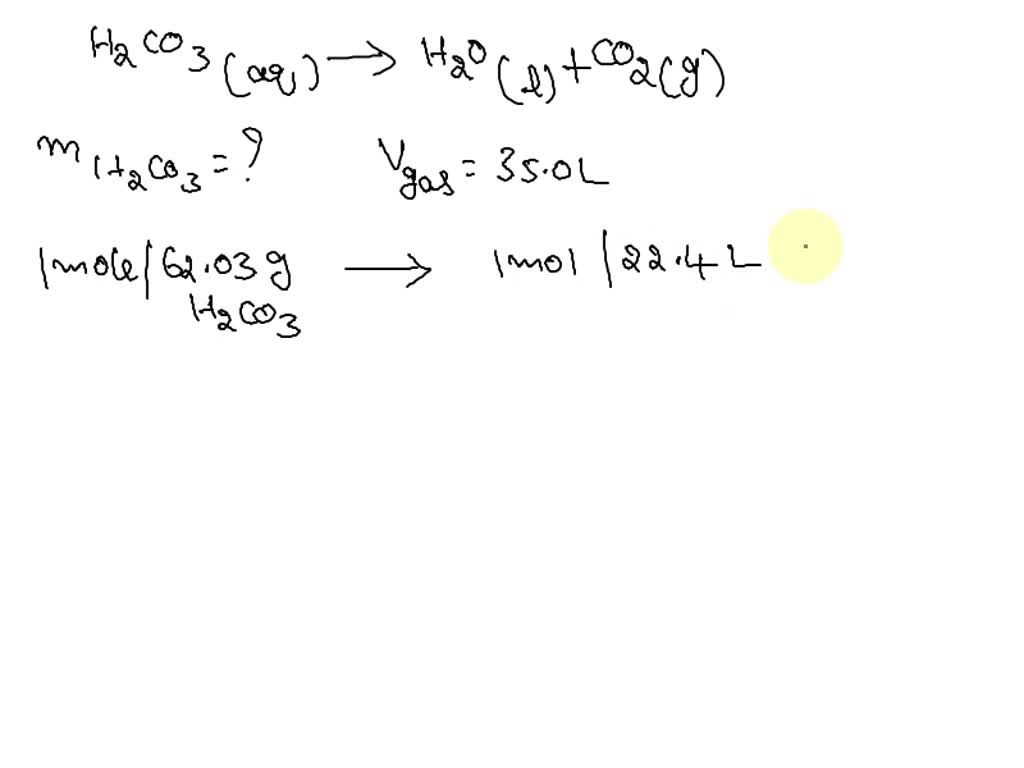 H2CO3(aq) → H2O(l) + CO2(g)
mH2CO3 = ? Vgas = 35.0L
1mole/62.03g → 1mol/22.4L
H2CO3